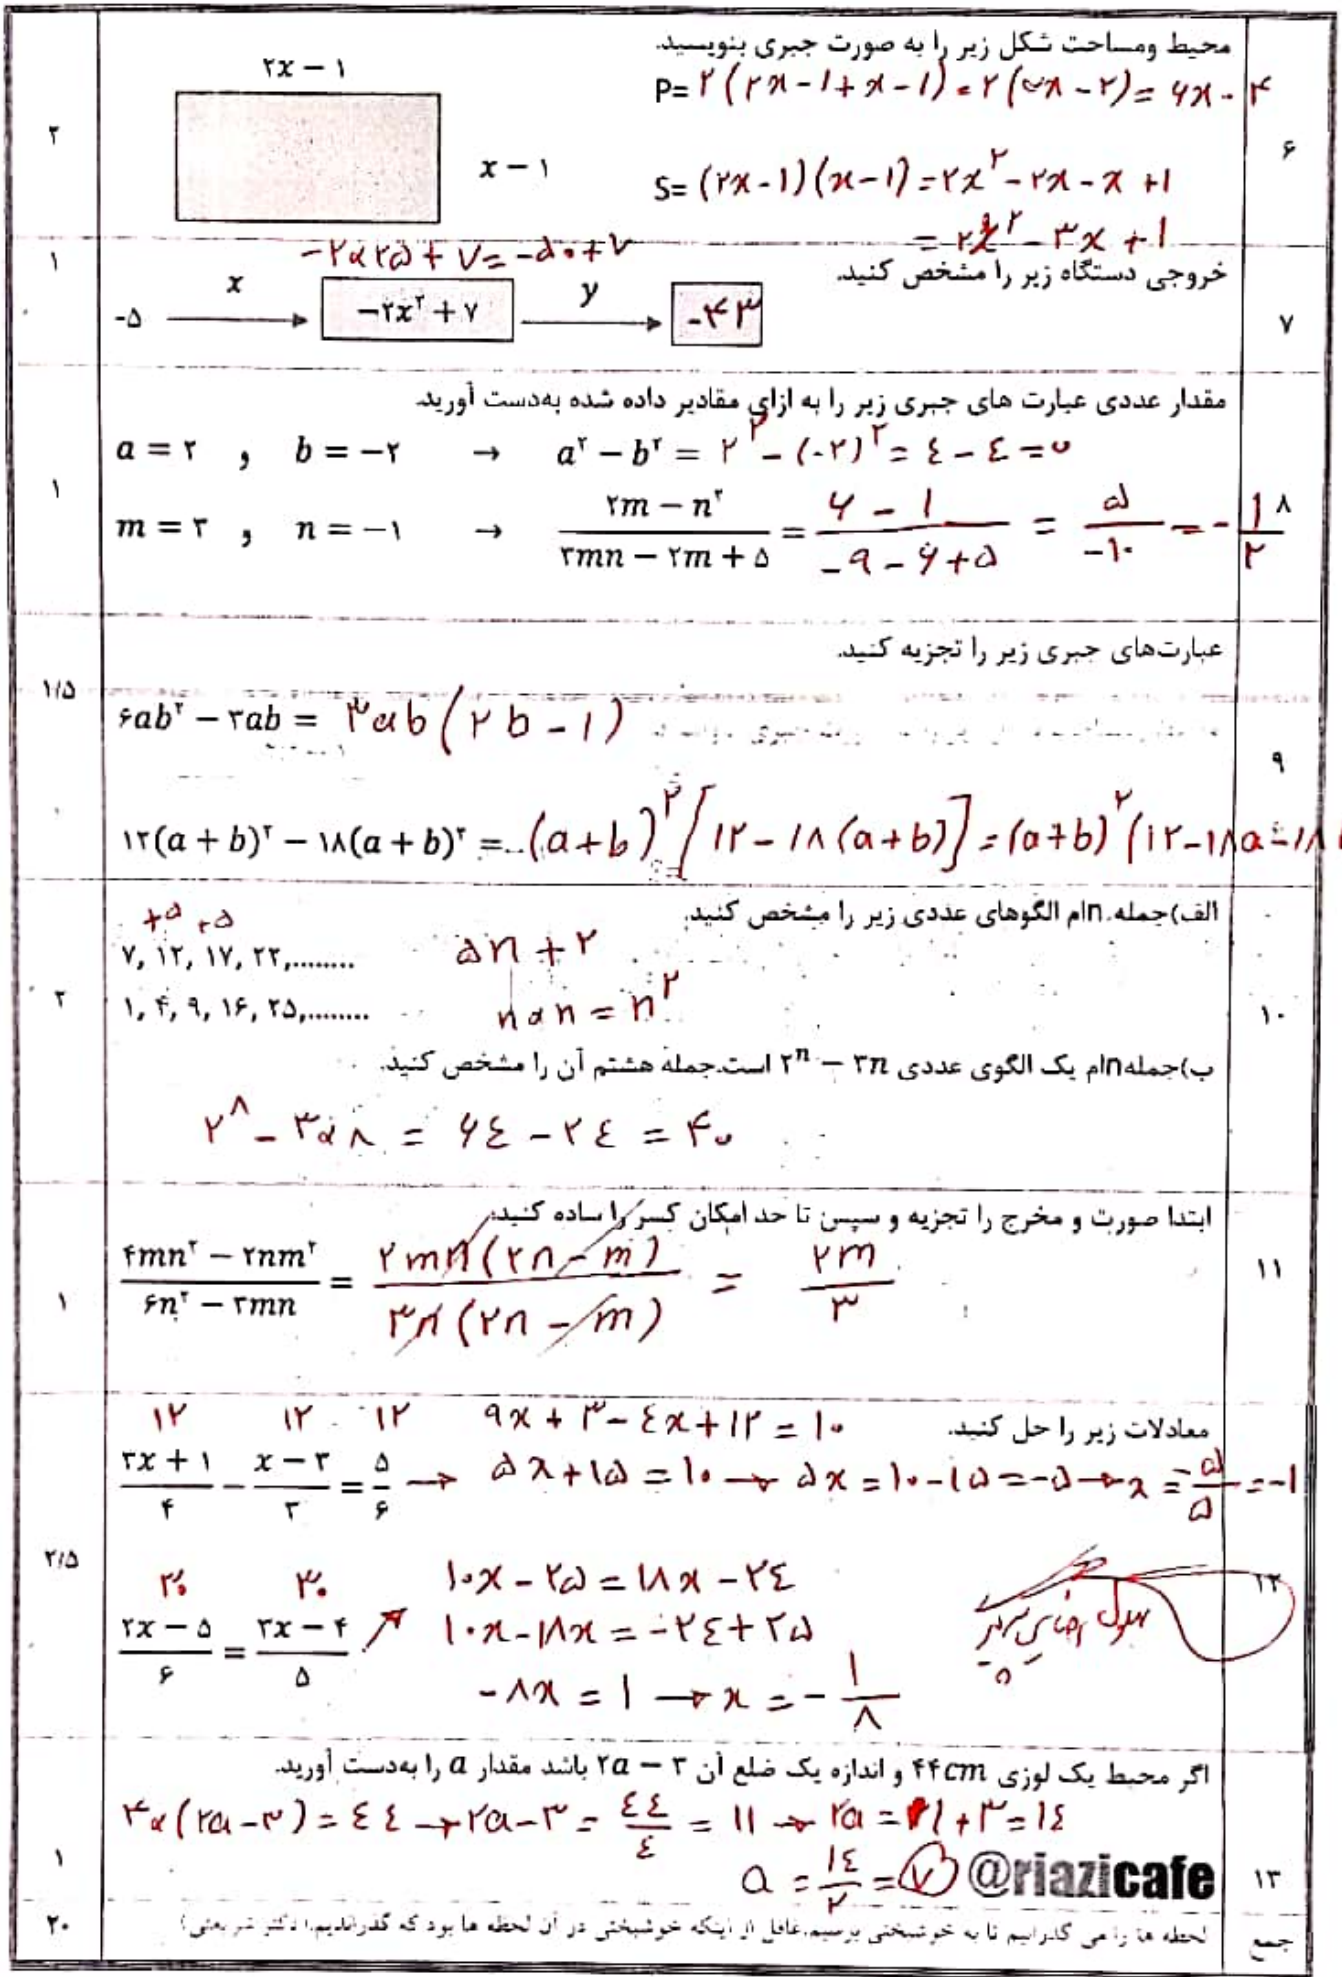 محیط ومساحت شکل زیر را به صورت جبری بنویسید.
۲x − ۱
x − ۱
P= ۲(۲x − ۱ + x − ۱) = ۲(۳x − ۲) = ۶x − ۴
S= (۲x − ۱)(x − ۱) = ۲x² − ۲x − x + ۱
= ۲x² − ۳x + ۱
۲
۶
خروجی دستگاه زیر را مشخص کنید.
−۲×۲۵ + ۷ = −۵۰ + ۷
-۵ x → −۲x² + ۷ y → −۴۳
۱
۷
مقدار عددی عبارت های جبری زیر را به ازای مقادیر داده شده به‌دست آورید.
a = ۲ , b = −۲ → a² − b² = ۲² − (−۲)² = ٤ − ٤ = ۰
m = ۳ , n = −۱ → (۲m − n²)/(۳mn − ۲m + ۵) = (۶ − ۱)/(−۹ − ۶ + ۵) = ۵/−۱۰ = −۱/۲
۱
۸
عبارت‌های جبری زیر را تجزیه کنید.
۶ab² − ۳ab = ۳ab(۲b − ۱)
۱۲(a + b)² − ۱۸(a + b)³ = (a+b)²[۱۲ − ۱۸(a+b)] = (a+b)²(۱۲ − ۱۸a − ۱۸b
۱/۵
۹
الف)جمله nام الگوهای عددی زیر را مشخص کنید.
+۵ +۵
۷, ۱۲, ۱۷, ۲۲,........ ۵n + ۲
۱, ۴, ۹, ۱۶, ۲۵,........ n × n = n²
ب)جملهnام یک الگوی عددی ۲ⁿ − ۳n است.جمله هشتم آن را مشخص کنید.
۲⁸ − ۳×۸ = ۶٤ − ۲٤ = ۴۰
۲
۱۰
ابتدا صورت و مخرج را تجزیه و سپس تا حد امکان کسر را ساده کنید.
(۴mn² − ۲nm²)/(۶n² − ۳mn) = ۲mn(۲n − m)/۳n(۲n − m) = ۲m/۳
۱
۱۱
معادلات زیر را حل کنید.
۱۲ ۱۲ ۱۲ ۹x + ۳ − ٤x + ۱۲ = ۱۰
(۳x + ۱)/۴ − (x − ۳)/۳ = ۵/۶ → ۵x + ۱۵ = ۱۰ → ۵x = ۱۰ − ۱۵ = −۵ → x = −۵/۵ = −۱
۳۰ ۳۰ ۱۰x − ۲۵ = ۱۸x − ۲٤
(۲x − ۵)/۶ = (۳x − ۴)/۵ ۱۰x − ۱۸x = −۲٤ + ۲۵
−۸x = ۱ → x = −۱/۸
۲/۵
۱۲
اگر محیط یک لوزی ۴۴cm و اندازه یک ضلع آن ۲a − ۳ باشد مقدار a را به‌دست آورید.
۴×(۲a − ۳) = ٤٤ → ۲a − ۳ = ٤٤/٤ = ۱۱ → ۲a = ۱۱ + ۳ = ۱٤
a = ۱٤/۲ = ۷ @riazicafe
۱
۱۳
لحظه ها را می گذرانیم تا به خوشبختی برسیم.غافل از اینکه خوشبختی در آن لحظه ها بود که گذراندیم.( دکتر شریعتی)
۲۰
جمع